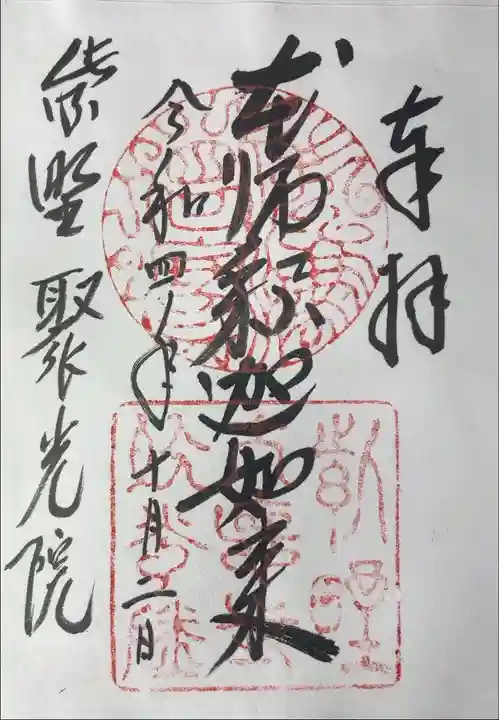 奉拝
本師釈迦如来
令和四年十月二日
紫野 聚光院